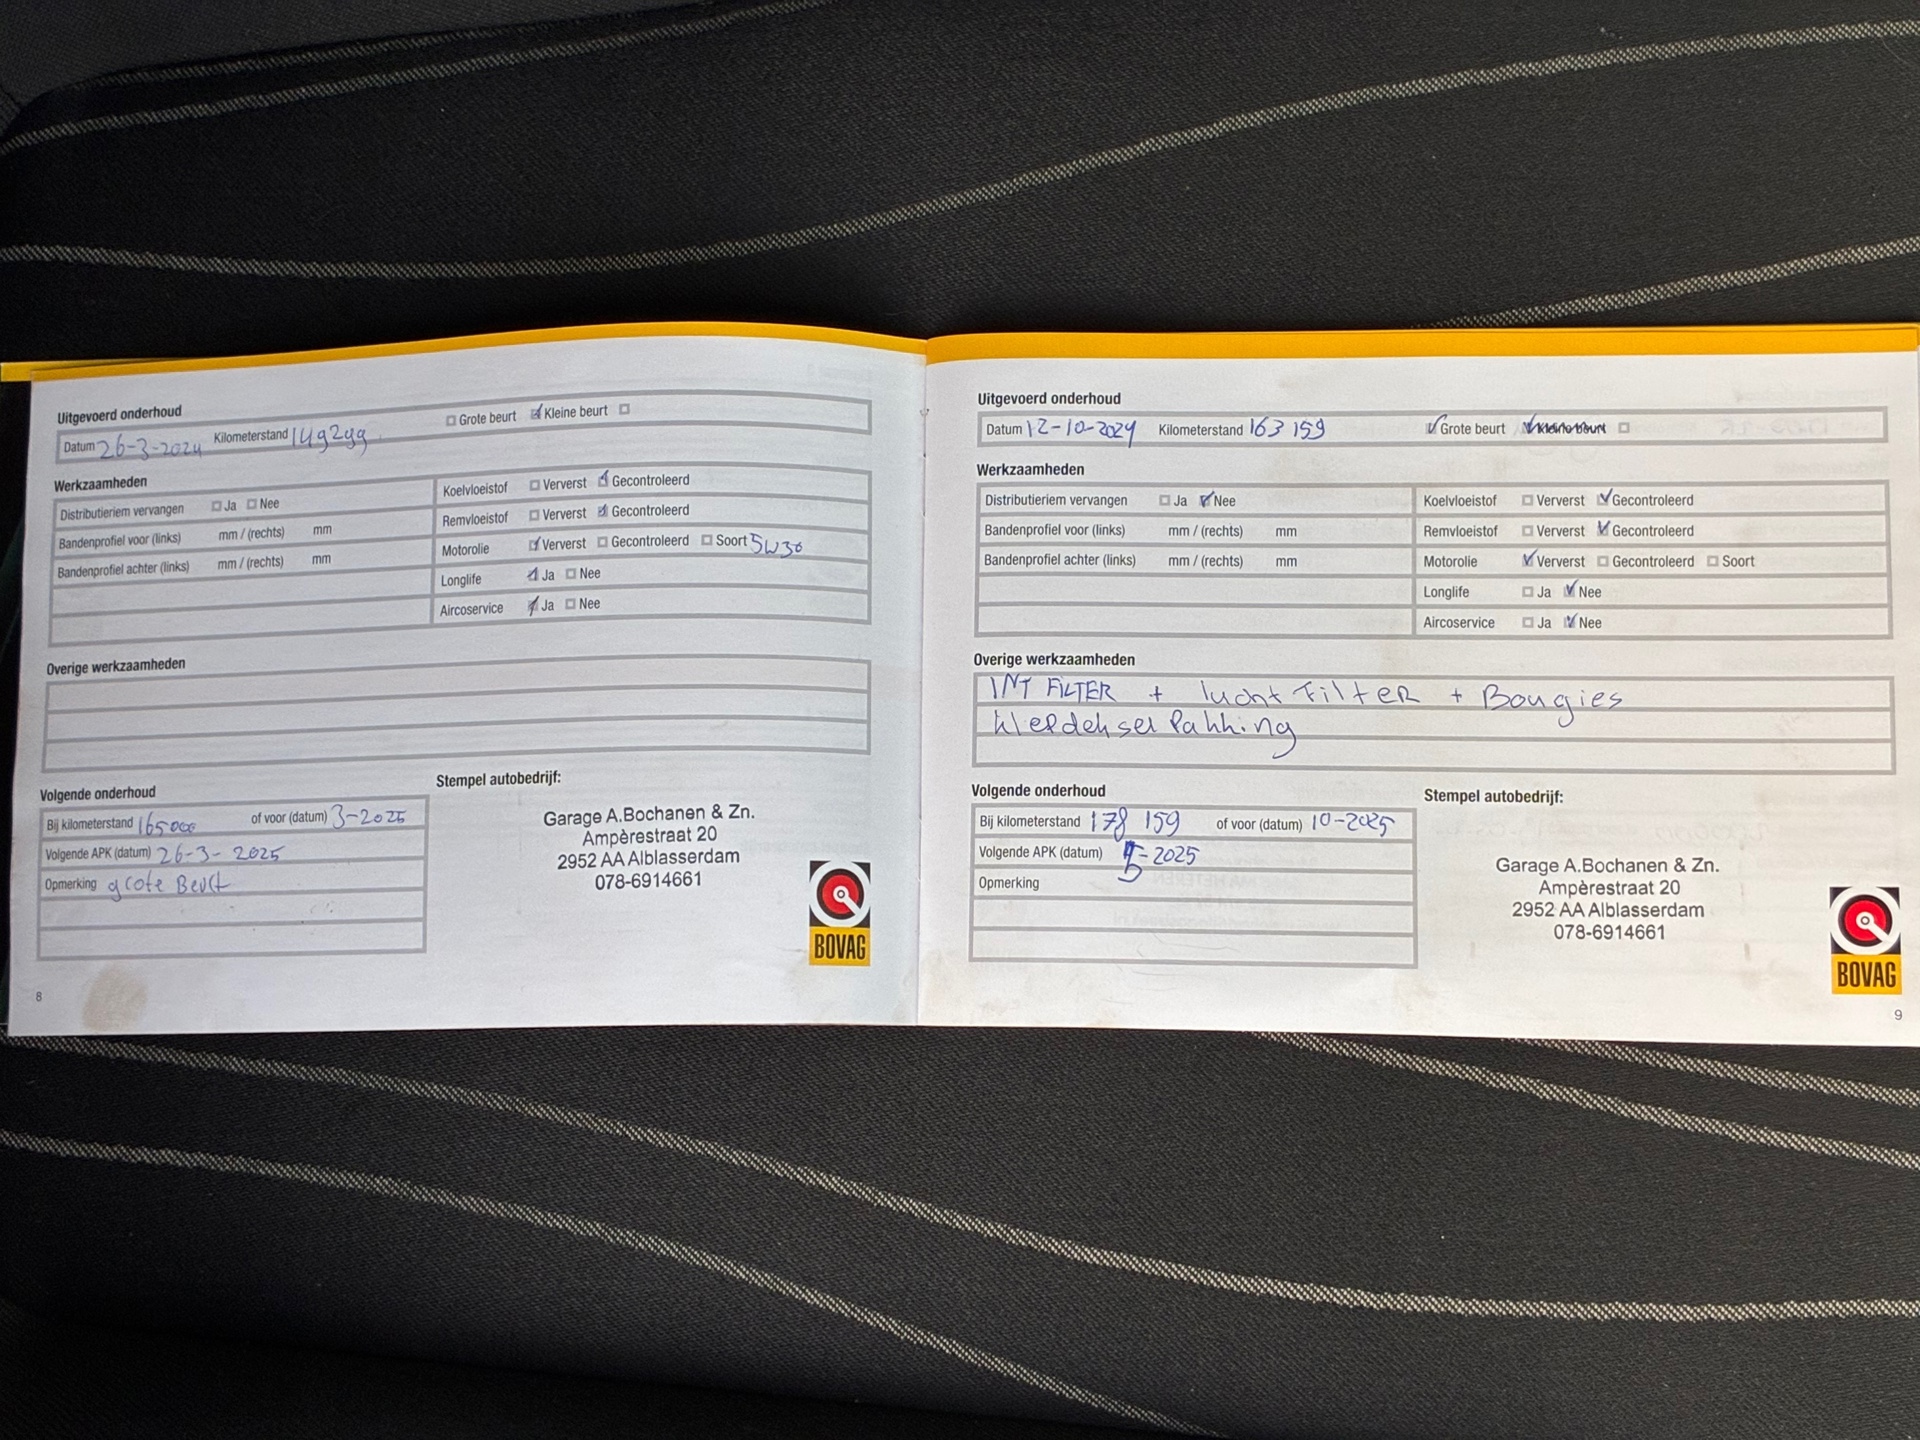 Uitgevoerd onderhoud
Datum 26-3-2024 Kilometerstand 149299 Grote beurt Kleine beurt
Werkzaamheden
Distributieriem vervangen Ja Nee
Bandenprofiel voor (links) mm / (rechts) mm
Bandenprofiel achter (links) mm / (rechts) mm
Koelvloeistof Ververst Gecontroleerd
Remvloeistof Ververst Gecontroleerd
Motorolie Ververst Gecontroleerd Soort 5W30
Longlife Ja Nee
Aircoservice Ja Nee
Overige werkzaamheden
Volgende onderhoud
Bij kilometerstand 165000 of voor (datum) 3-2025
Volgende APK (datum) 26-3-2025
Opmerking grote Beurt
Stempel autobedrijf:
Garage A.Bochanen & Zn.
Ampèrestraat 20
2952 AA Alblasserdam
078-6914661
BOVAG
8
Uitgevoerd onderhoud
Datum 12-10-2024 Kilometerstand 163 159 Grote beurt Kleine beurt
Werkzaamheden
Distributieriem vervangen Ja Nee
Bandenprofiel voor (links) mm / (rechts) mm
Bandenprofiel achter (links) mm / (rechts) mm
Koelvloeistof Ververst Gecontroleerd
Remvloeistof Ververst Gecontroleerd
Motorolie Ververst Gecontroleerd Soort
Longlife Ja Nee
Aircoservice Ja Nee
Overige werkzaamheden
INT FILTER + luchtFilTER + Bougies
klepdeksel Pakking
Volgende onderhoud
Bij kilometerstand 178 159 of voor (datum) 10-2025
Volgende APK (datum) 5-2025
Opmerking
Stempel autobedrijf:
Garage A.Bochanen & Zn.
Ampèrestraat 20
2952 AA Alblasserdam
078-6914661
BOVAG
9